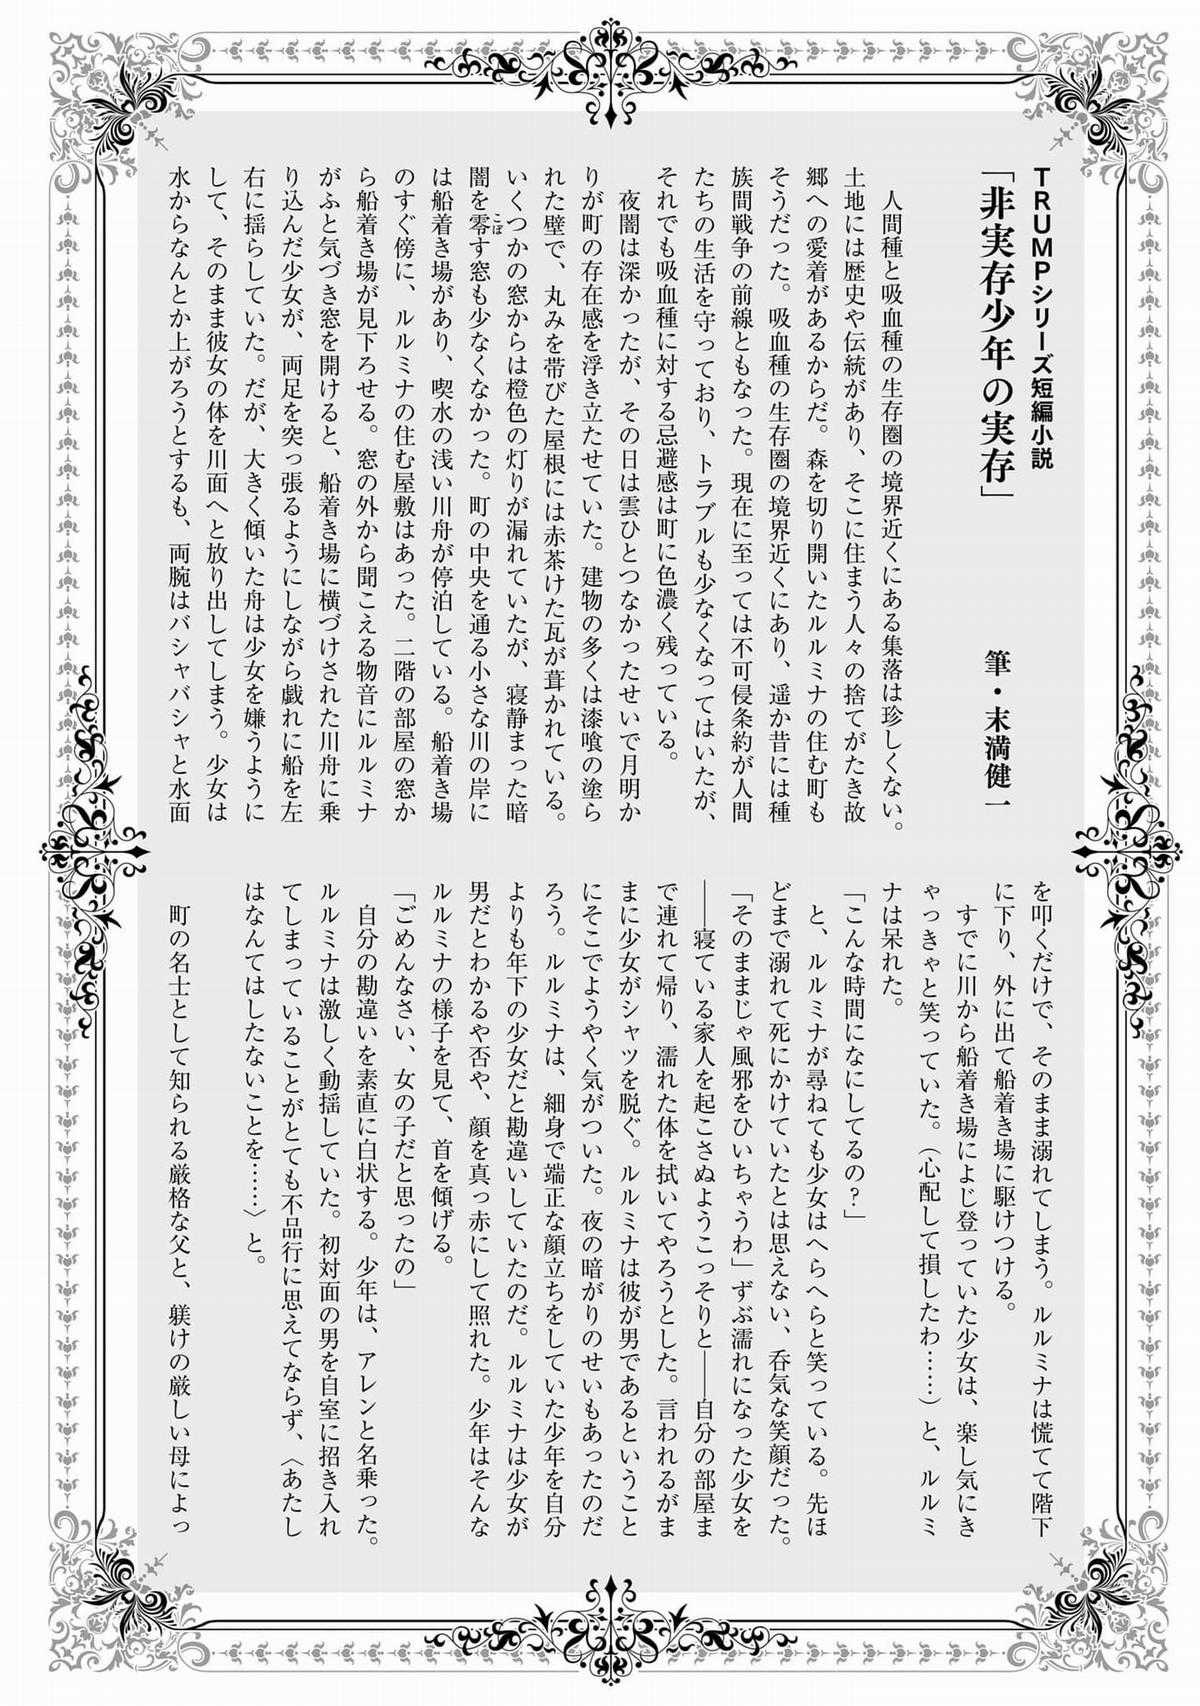 TRUMPシリーズ短編小説
「非実存少年の実存」
筆・末満健一
人間種と吸血種の生存圏の境界近くにある集落は珍しくない。
土地には歴史や伝統があり、そこに住まう人々の捨てがたき故
郷への愛着があるからだ。森を切り開いたルルミナの住む町も
そうだった。吸血種の生存圏の境界近くにあり、遥か昔には種
族間戦争の前線ともなった。現在に至っては不可侵条約が人間
たちの生活を守っており、トラブルも少なくなってはいたが、
それでも吸血種に対する忌避感は町に色濃く残っている。
夜闇は深かったが、その日は雲ひとつなかったせいで月明か
りが町の存在感を浮き立たせていた。建物の多くは漆喰の塗ら
れた壁で、丸みを帯びた屋根には赤茶けた瓦が葺かれている。
いくつかの窓からは橙色の灯りが漏れていたが、寝静まった暗
闇を零こぼす窓も少なくなかった。町の中央を通る小さな川の岸に
は船着き場があり、喫水の浅い川舟が停泊している。船着き場
のすぐ傍に、ルルミナの住む屋敷はあった。二階の部屋の窓か
ら船着き場が見下ろせる。窓の外から聞こえる物音にルルミナ
がふと気づき窓を開けると、船着き場に横づけされた川舟に乗
り込んだ少女が、両足を突っ張るようにしながら戯れに船を左
右に揺らしていた。だが、大きく傾いた舟は少女を嫌うように
して、そのまま彼女の体を川面へと放り出してしまう。少女は
水からなんとか上がろうとするも、両腕はバシャバシャと水面
を叩くだけで、そのまま溺れてしまう。ルルミナは慌てて階下
に下り、外に出て船着き場に駆けつける。
すでに川から船着き場によじ登っていた少女は、楽し気にき
ゃっきゃと笑っていた。（心配して損したわ……）と、ルルミ
ナは呆れた。
「こんな時間になにしてるの？」
と、ルルミナが尋ねても少女はへらへらと笑っている。先ほ
どまで溺れて死にかけていたとは思えない、呑気な笑顔だった。
「そのままじゃ風邪をひいちゃうわ」ずぶ濡れになった少女を
――寝ている家人を起こさぬようこっそりと――自分の部屋ま
で連れて帰り、濡れた体を拭いてやろうとした。言われるがま
まに少女がシャツを脱ぐ。ルルミナは彼が男であるということ
にそこでようやく気がついた。夜の暗がりのせいもあったのだ
ろう。ルルミナは、細身で端正な顔立ちをしていた少年を自分
よりも年下の少女だと勘違いしていたのだ。ルルミナは少女が
男だとわかるや否や、顔を真っ赤にして照れた。少年はそんな
ルルミナの様子を見て、首を傾げる。
「ごめんなさい、女の子だと思ったの」
自分の勘違いを素直に白状する。少年は、アレンと名乗った。
ルルミナは激しく動揺していた。初対面の男を自室に招き入れ
てしまっていることがとても不品行に思えてならず、〈あたし
はなんてはしたないことを……〉と。
町の名士として知られる厳格な父と、躾けの厳しい母によっ